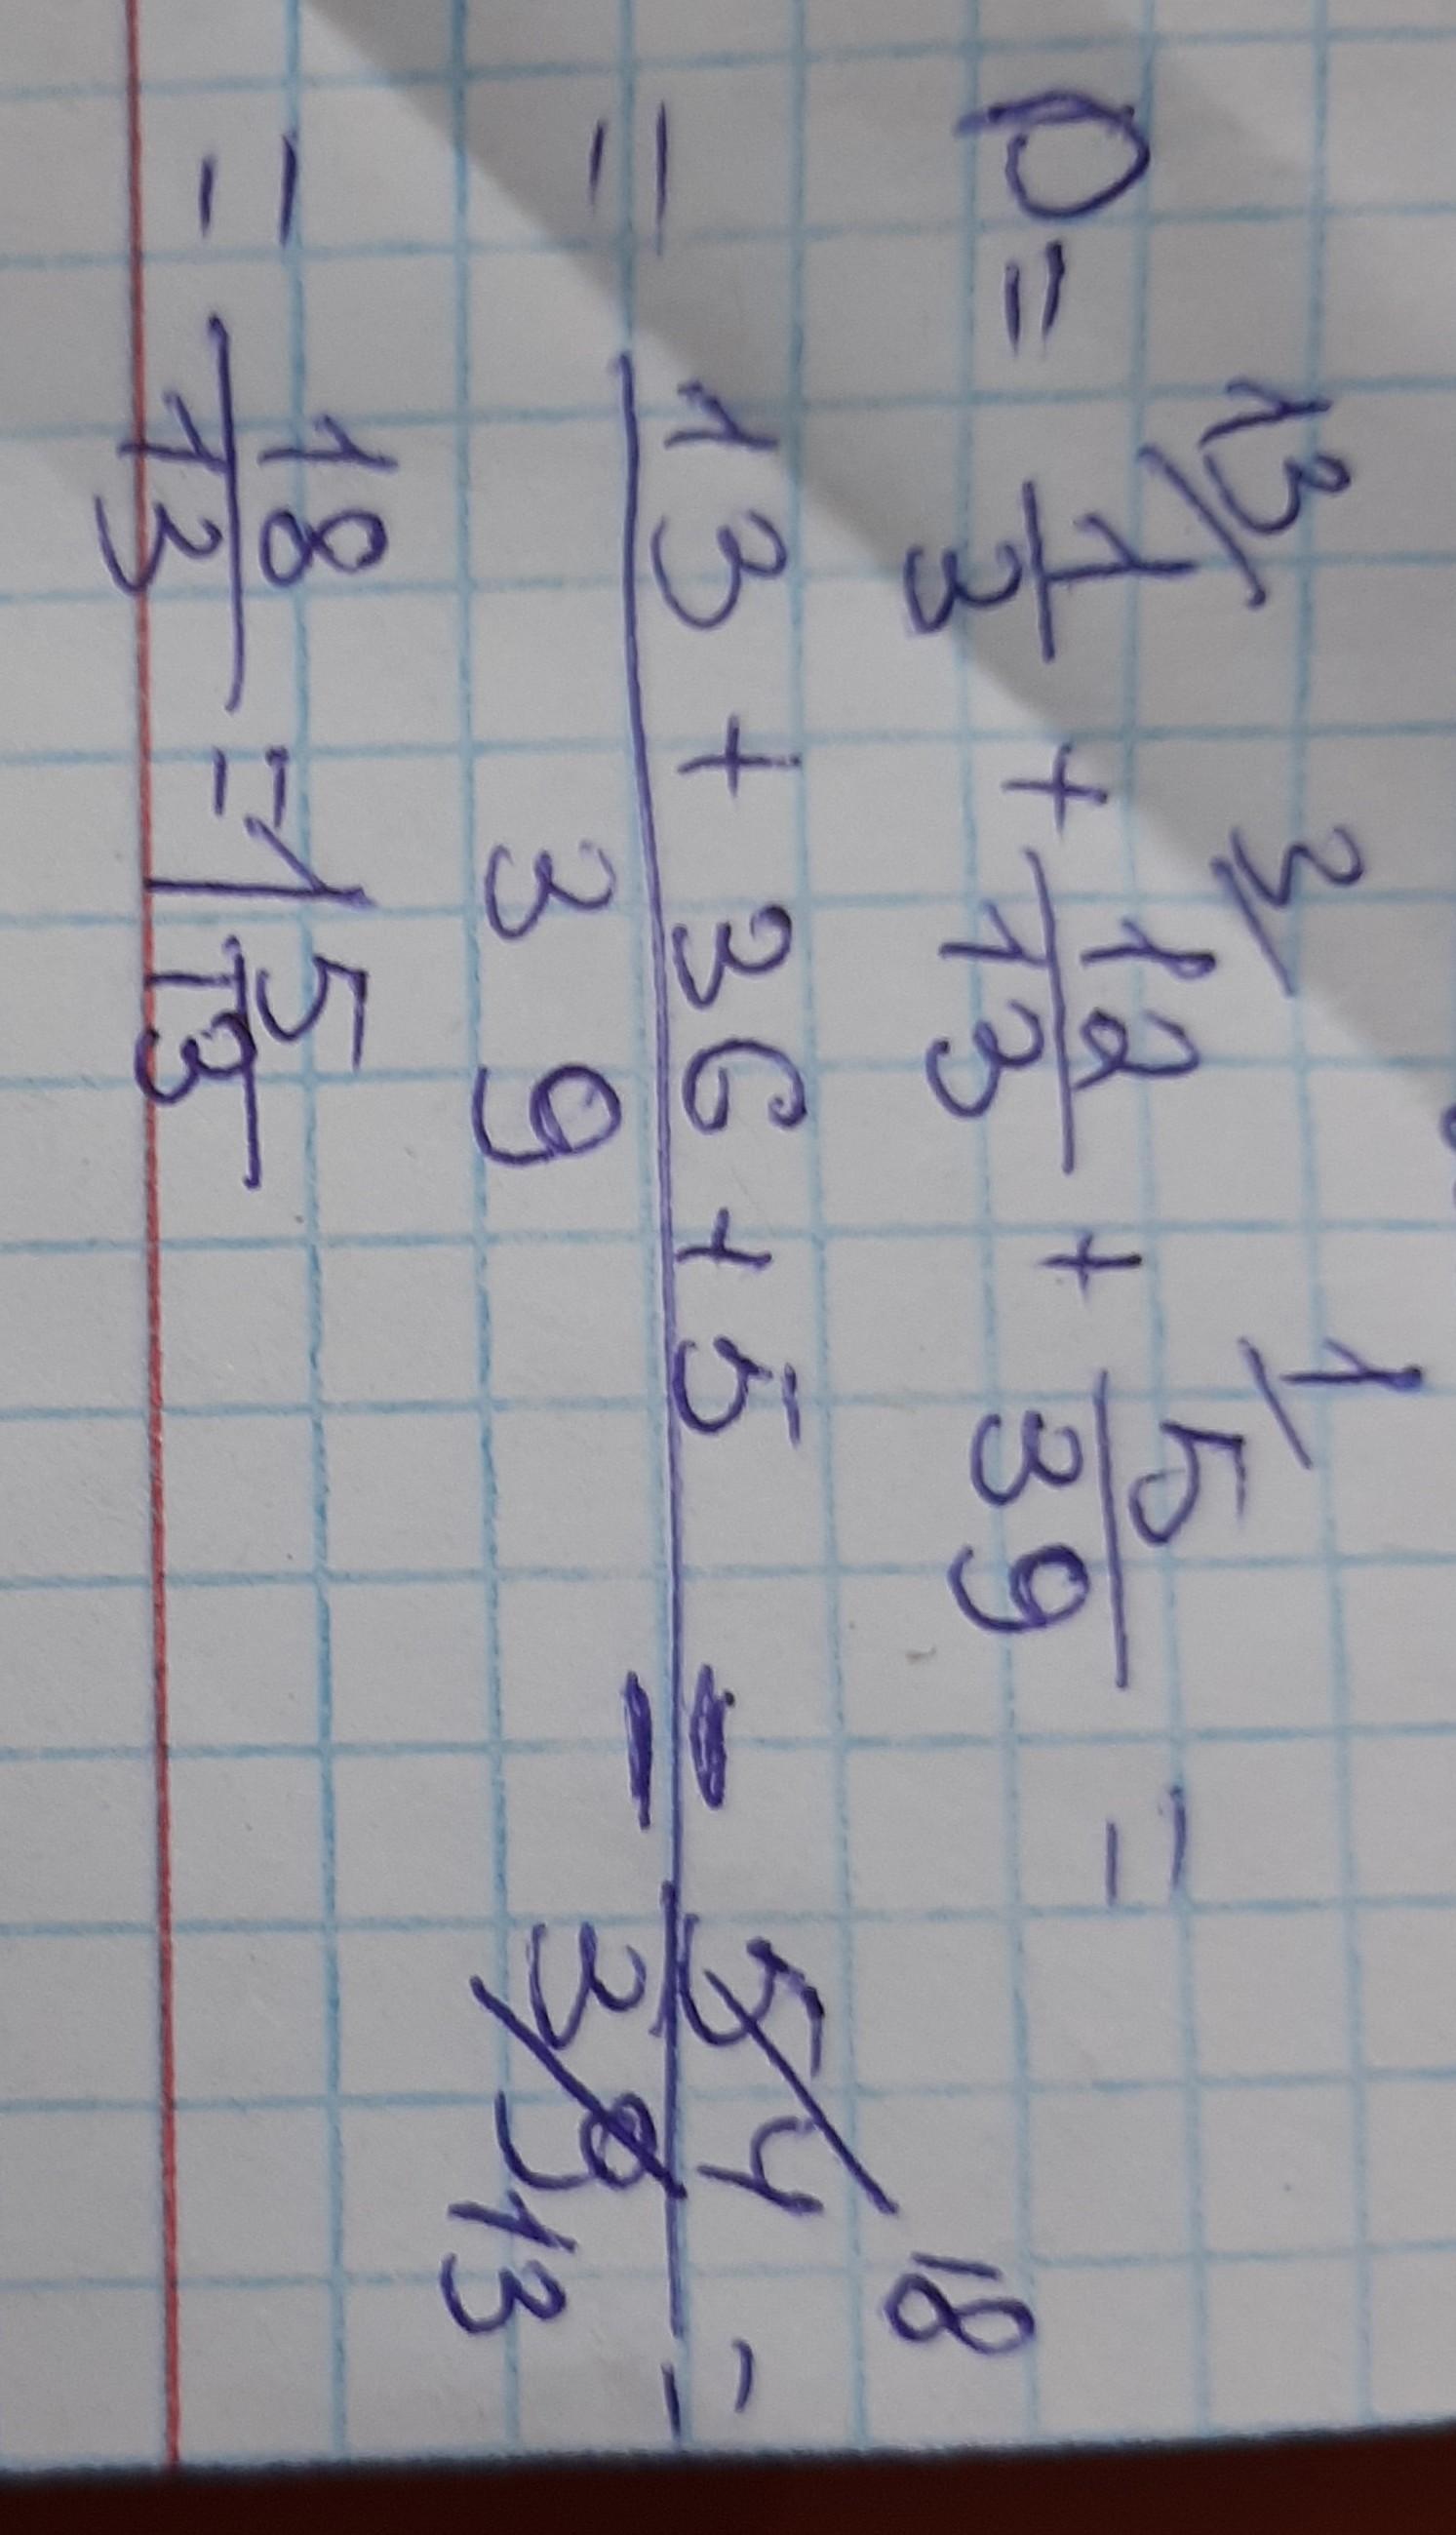 p = 13/ 1/3 + 3/ 12/13 + 1/ 5/39 =
= (13 + 36 + 5)/39 = 54/39 18 13 =
= 18/13 = 1 5/13